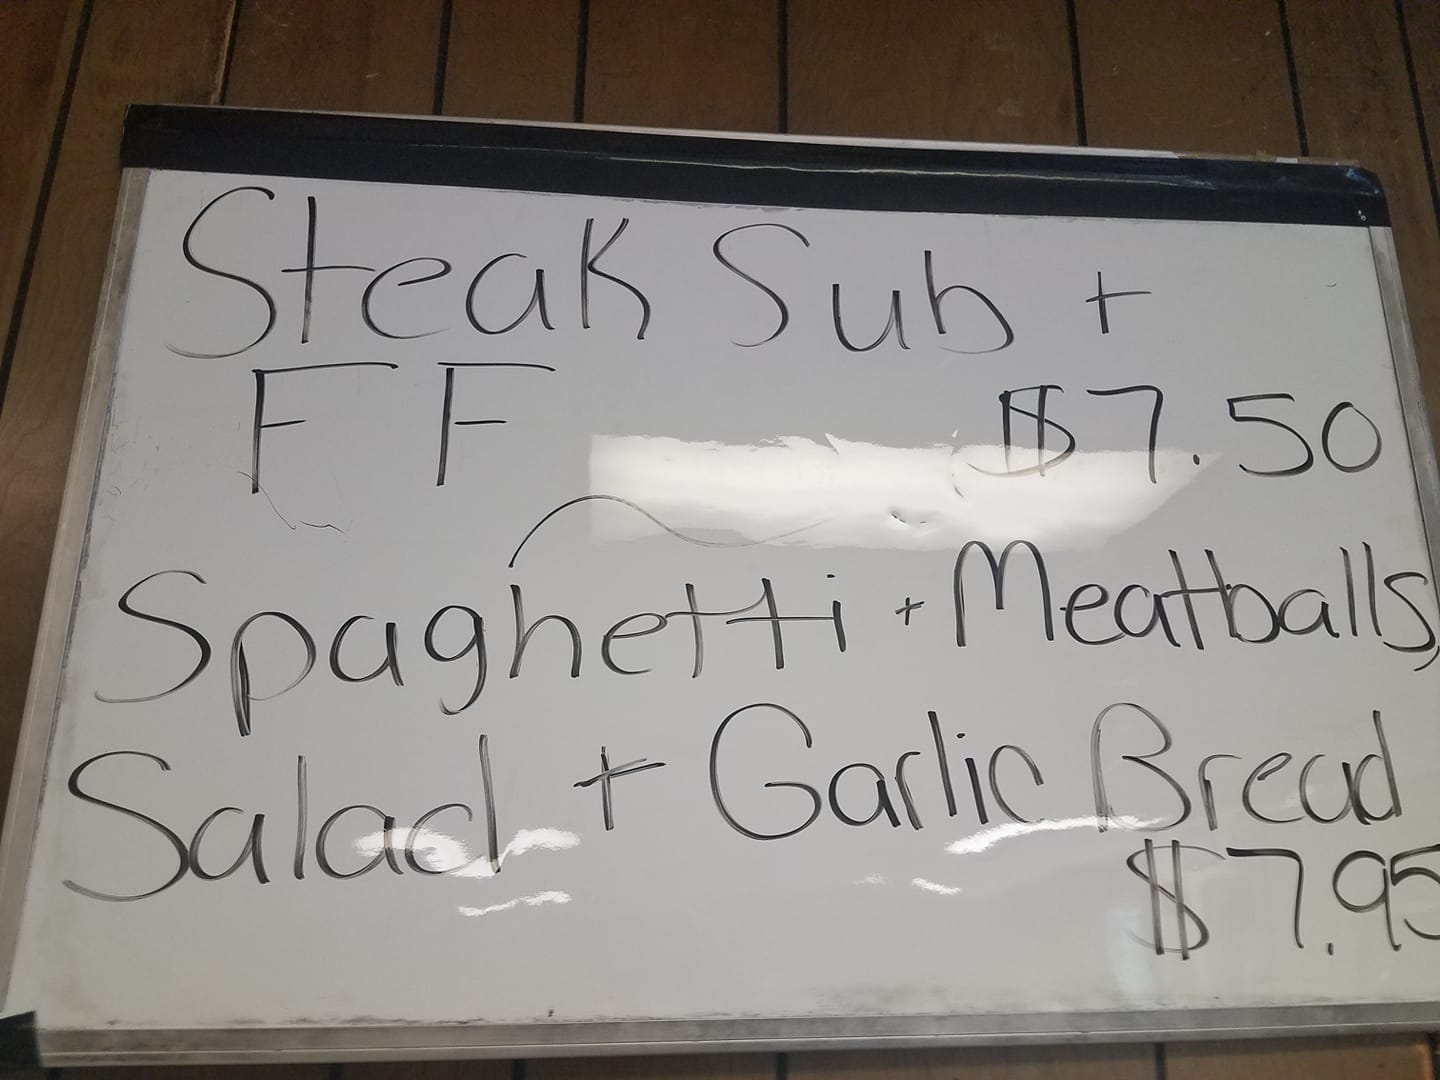 Steak Sub +
FF $7.50
Spaghetti + Meatballs,
Salad + Garlic Bread
$7.95